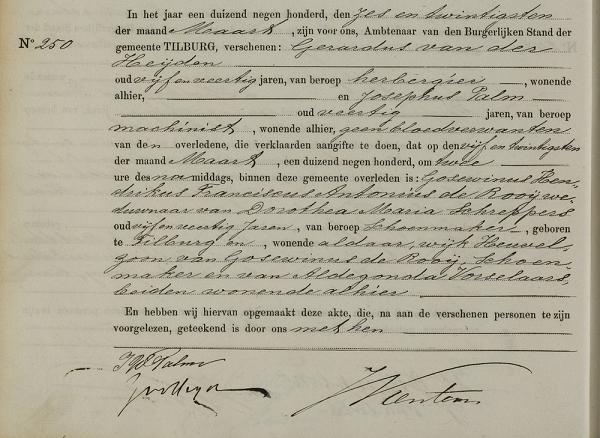 In het jaar een duizend negen honderd, den zes en twintigsten
der maand Maart, zijn voor ons, Ambtenaar van den Burgerlijken Stand der
No 250
gemeente TILBURG, verschenen: Gerardus van der
Heijden
oud vijf en veertig jaren, van beroep herbergier, wonende
alhier, en Josephus Palm
oud veertig jaren, van beroep
machinist, wonende alhier, geen bloedverwanten
van den overledene, die verklaarden aangifte te doen, dat op den vijf en twintigsten
der maand Maart, een duizend negen honderd, om twee
ure des namiddags, binnen deze gemeente overleden is: Gosewinus Hen-
drikus Franciscus Antonius de Rooij we-
duwnaar van Dorothea Maria Schreppers
oud vijf en veertig Jaren, van beroep Schoenmaker, geboren
te Tilburg en, wonende aldaar, wijk Heuvel,
zoon van Gosewinus de Rooij, schoen-
maker en van Aldegonda Vorselaars,
beiden wonende alhier
En hebben wij hiervan opgemaakt deze akte, die, na aan de verschenen personen te zijn
voorgelezen, geteekend is door ons met hen
Palm